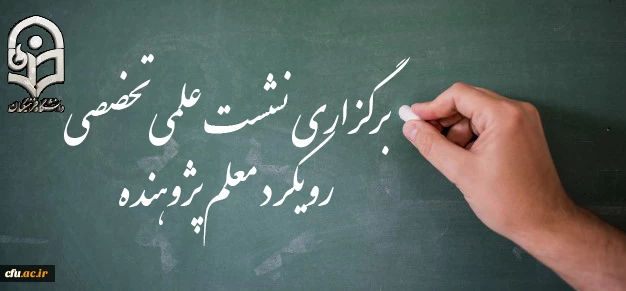 دانشگاه فرهنگیان
برگزاری نشست علمی تخصصی
رویکرد معلم پژوهنده
cfu.ac.ir